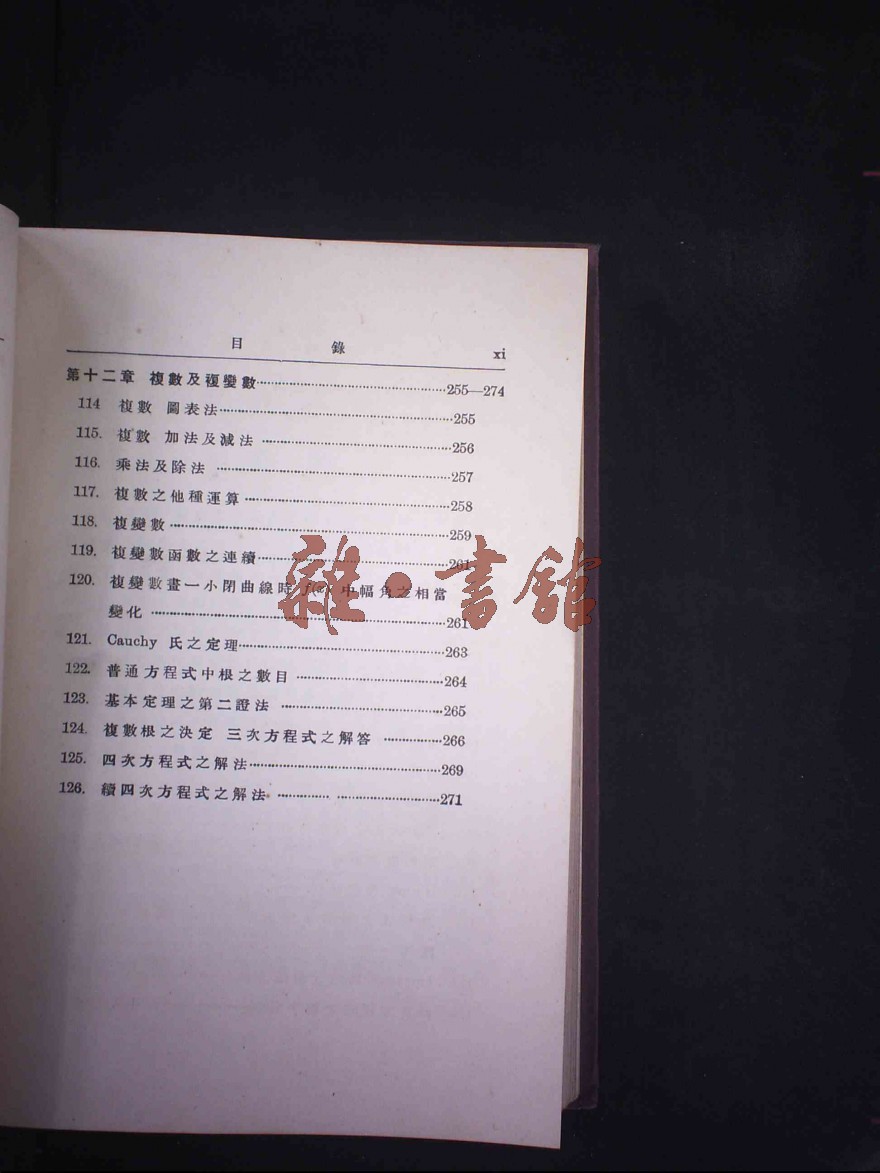 目 錄 xi
第十二章 複數及複變數……255—274
114 複數 圖表法……255
115. 複數 加法及減法……256
116. 乘法及除法……257
117. 複數之他種運算……258
118. 複變數……259
119. 複變數函數之連續……261
120. 複變數畫一小閉曲線時 f(z) 中幅角之相當
變化……261
121. Cauchy 氏之定理……263
122. 普通方程式中根之數目……264
123. 基本定理之第二證法……265
124. 複數根之決定 三次方程式之解答……266
125. 四次方程式之解法……269
126. 續四次方程式之解法……271
雜·書館